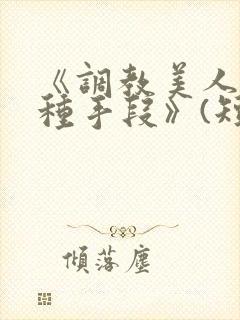 《調教美人
種手段》(短
傾落塵